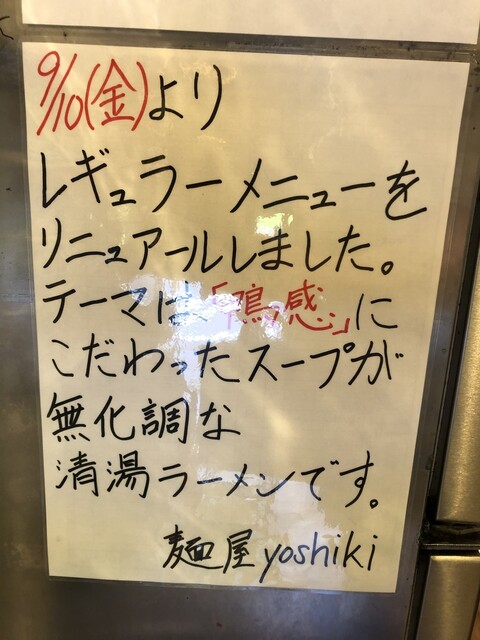 9/10(金)より
レギュラーメニューを
リニュアールしました。
テーマは「鴨感」に
こだわったスープが
無化調な
清湯ラーメンです。
麺屋yoshiki